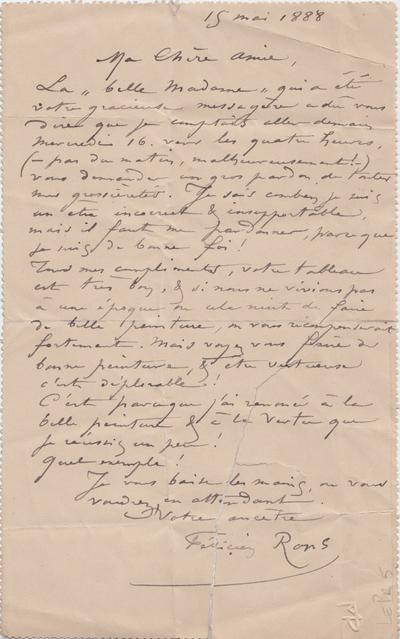 15 mai 1888
Ma Chère Amie,
La „ belle Madame „ qui a été
votre gracieuse messagère a du vous
dire que je comptais aller demain
mercredi 16. vers les quatre heures,
(– pas du matin, malheureusement! –)
vous demander un gros pardon de toutes
mes grossièretés. Je sais combien je suis
un être incorrect & insupportable,
mais il faut me pardonner, parce que
je suis de bonne foi!
Tous mes compliments, votre tableau
est très bon, & si nous ne vivions pas
à une époque où cela nuit de faire
de belle peinture, on vous récompenserait
fortement. Mais voyez vous faire de
bonne peinture, & être vertueuse
c'est déplorable!
C'est parceque j'ai renoncé à la
belle peinture & à la vertu que
je réussis un peu!
Quel exemple!
Je vous baise les mains, où vous
voudrez, en attendant.
Votre ancêtre
Félicien Rops
LEpR 5